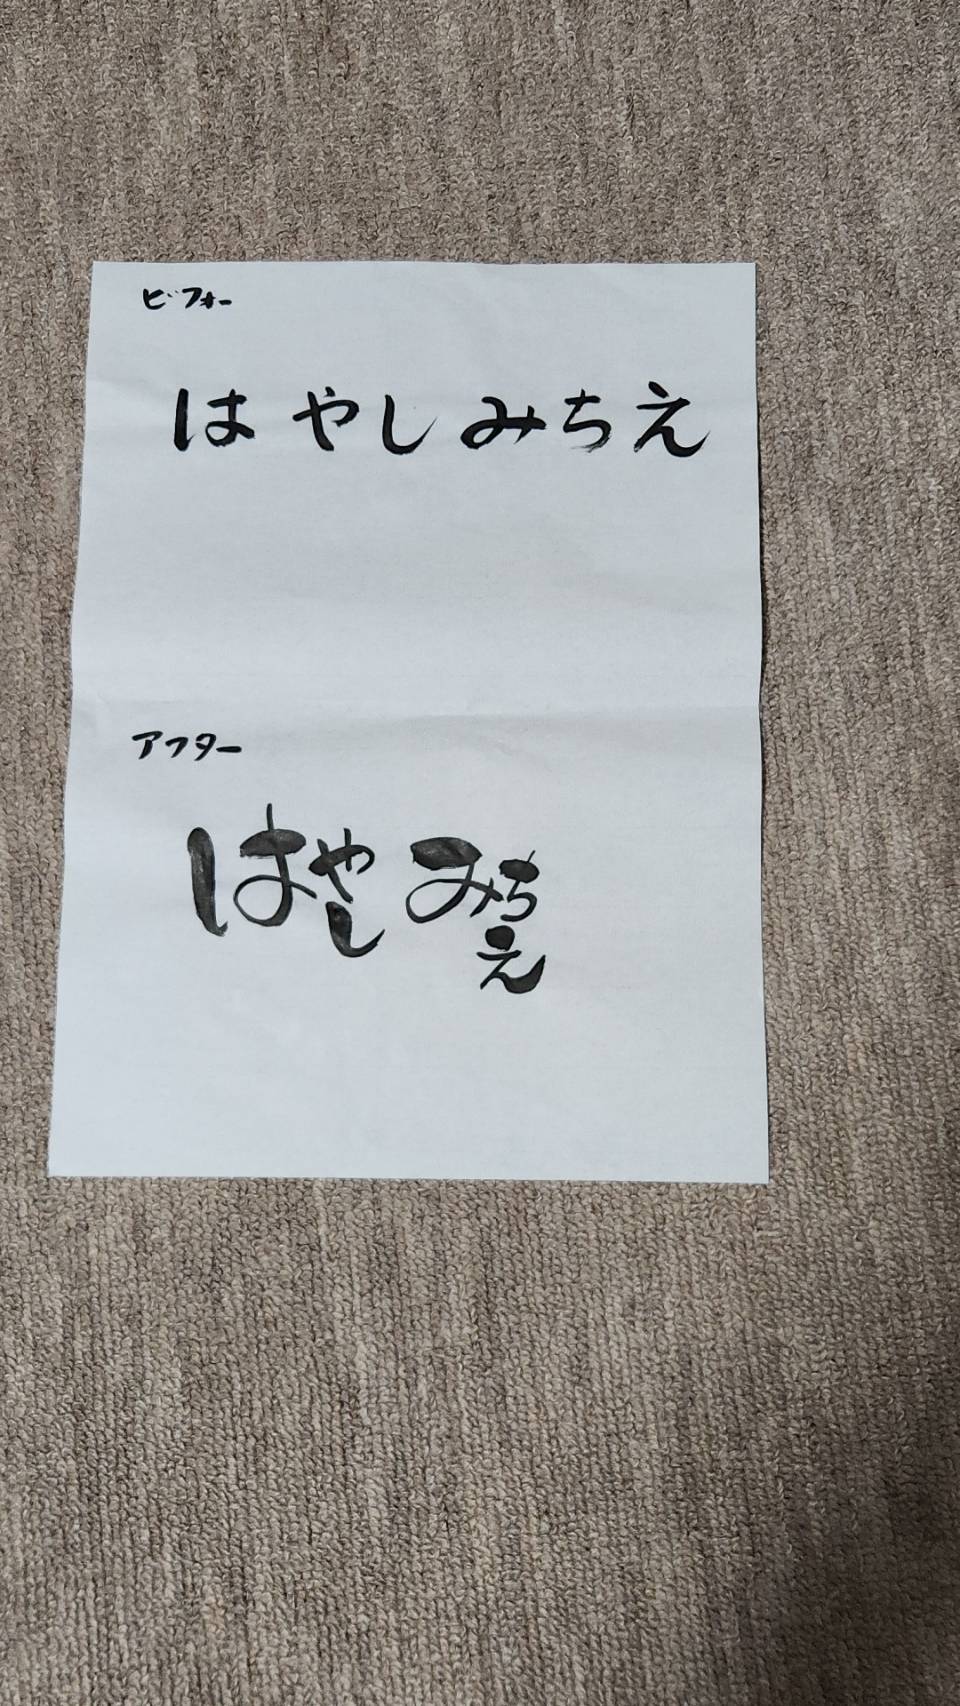 ビフォー
はやしみちえ
アフター
はやし みちえ